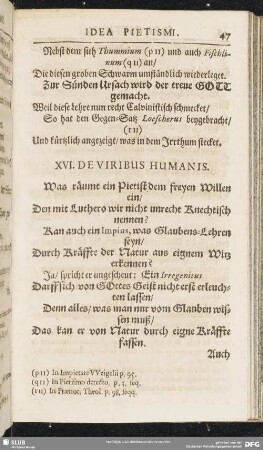 IDEA PIETISMI. 47
Nebst dem sich Thummium (p 11) und auch Fischli-
num (q 11) an/
Die diesen groben Schwarm umständlich wiederleget.
Zur Sünden Ursach wird der treue GOTT
gemacht.
Weil diese Lehre nun recht Calvinistisch schmecket/
So hat den Gegen-Satz Loescherus beygebracht/
(r 11)
Und kürtzlich angezeigt/ was in dem Irrthum stecket.
XVI. DE VIRIBUS HUMANIS.
Was räumt ein Pietist dem freyen Willen
ein/
Den mit Luthero wir nicht unrecht Knechtisch
nennen?
Kan auch ein Impius, was Glaubens-Lehren
seyn/
Durch Kräffte der Natur aus eignem Witz
erkennen?
Ja/ spricht er ungescheut: Ein Irregenitus
Darff sich von GOttes Geist nicht erst erleuch-
ten lassen/
Denn alles/ was man nur vom Glauben wis-
sen muß/
Das kan er von Natur durch eigne Kräffte
fassen.
Auch
(p 11) In Impietate VVeigelii p. 95.
(q 11) In Pietismo detecto, p. 3. seq.
(r 11) In Praenot. Theol. p. 98. seqq.
SLUB
DFG